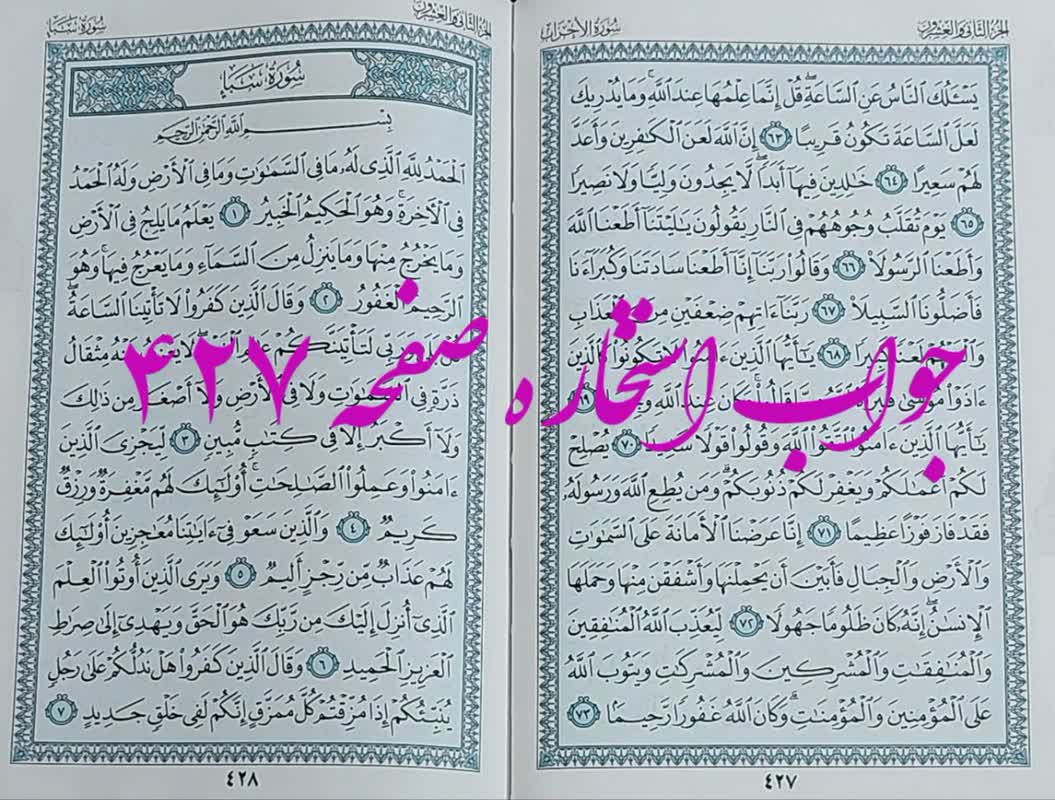 الجزء الثاني والعشرون
سورة الأحزاب
يَسْـَٔلُكَ ٱلنَّاسُ عَنِ ٱلسَّاعَةِۖ قُلْ إِنَّمَا عِلْمُهَا عِندَ ٱللَّهِۚ وَمَا يُدْرِيكَ
لَعَلَّ ٱلسَّاعَةَ تَكُونُ قَرِيبًا ٦٣ إِنَّ ٱللَّهَ لَعَنَ ٱلْكَٰفِرِينَ وَأَعَدَّ
لَهُمْ سَعِيرًا ٦٤ خَٰلِدِينَ فِيهَآ أَبَدًاۖ لَّا يَجِدُونَ وَلِيًّا وَلَا نَصِيرًا
٦٥ يَوْمَ تُقَلَّبُ وُجُوهُهُمْ فِي ٱلنَّارِ يَقُولُونَ يَٰلَيْتَنَآ أَطَعْنَا ٱللَّهَ
وَأَطَعْنَا ٱلرَّسُولَا۠ ٦٦ وَقَالُوا۟ رَبَّنَآ إِنَّآ أَطَعْنَا سَادَتَنَا وَكُبَرَآءَنَا
فَأَضَلُّونَا ٱلسَّبِيلَا۠ ٦٧ رَبَّنَآ ءَاتِهِمْ ضِعْفَيْنِ مِنَ ٱلْعَذَابِ
وَٱلْعَنْهُمْ لَعْنًا كَبِيرًا ٦٨ يَٰٓأَيُّهَا ٱلَّذِينَ ءَامَنُوا۟ لَا تَكُونُوا۟ كَٱلَّذِينَ
ءَاذَوْا۟ مُوسَىٰ فَبَرَّأَهُ ٱللَّهُ مِمَّا قَالُوا۟ۚ وَكَانَ عِندَ ٱللَّهِ وَجِيهًا ٦٩
يَٰٓأَيُّهَا ٱلَّذِينَ ءَامَنُوا۟ ٱتَّقُوا۟ ٱللَّهَ وَقُولُوا۟ قَوْلًا سَدِيدًا ٧٠ يُصْلِحْ
لَكُمْ أَعْمَٰلَكُمْ وَيَغْفِرْ لَكُمْ ذُنُوبَكُمْۗ وَمَن يُطِعِ ٱللَّهَ وَرَسُولَهُۥ
فَقَدْ فَازَ فَوْزًا عَظِيمًا ٧١ إِنَّا عَرَضْنَا ٱلْأَمَانَةَ عَلَى ٱلسَّمَٰوَٰتِ
وَٱلْأَرْضِ وَٱلْجِبَالِ فَأَبَيْنَ أَن يَحْمِلْنَهَا وَأَشْفَقْنَ مِنْهَا وَحَمَلَهَا
ٱلْإِنسَٰنُۖ إِنَّهُۥ كَانَ ظَلُومًا جَهُولًا ٧٢ لِّيُعَذِّبَ ٱللَّهُ ٱلْمُنَٰفِقِينَ
وَٱلْمُنَٰفِقَٰتِ وَٱلْمُشْرِكِينَ وَٱلْمُشْرِكَٰتِ وَيَتُوبَ ٱللَّهُ
عَلَى ٱلْمُؤْمِنِينَ وَٱلْمُؤْمِنَٰتِۗ وَكَانَ ٱللَّهُ غَفُورًا رَّحِيمًۢا ٧٣
٤٢٧
الجزء الثاني والعشرون
سورة سبإ
سُورَةُ سَبَإٍ
بِسْمِ ٱللَّهِ ٱلرَّحْمَٰنِ ٱلرَّحِيمِ
ٱلْحَمْدُ لِلَّهِ ٱلَّذِي لَهُۥ مَا فِي ٱلسَّمَٰوَٰتِ وَمَا فِي ٱلْأَرْضِ وَلَهُ ٱلْحَمْدُ
فِي ٱلْـَٔاخِرَةِۚ وَهُوَ ٱلْحَكِيمُ ٱلْخَبِيرُ ١ يَعْلَمُ مَا يَلِجُ فِي ٱلْأَرْضِ
وَمَا يَخْرُجُ مِنْهَا وَمَا يَنزِلُ مِنَ ٱلسَّمَآءِ وَمَا يَعْرُجُ فِيهَاۚ وَهُوَ
ٱلرَّحِيمُ ٱلْغَفُورُ ٢ وَقَالَ ٱلَّذِينَ كَفَرُوا۟ لَا تَأْتِينَا ٱلسَّاعَةُۖ
قُلْ بَلَىٰ وَرَبِّي لَتَأْتِيَنَّكُمْ عَٰلِمِ ٱلْغَيْبِۖ لَا يَعْزُبُ عَنْهُ مِثْقَالُ
ذَرَّةٍ فِي ٱلسَّمَٰوَٰتِ وَلَا فِي ٱلْأَرْضِ وَلَآ أَصْغَرُ مِن ذَٰلِكَ
وَلَآ أَكْبَرُ إِلَّا فِي كِتَٰبٍ مُّبِينٍ ٣ لِّيَجْزِيَ ٱلَّذِينَ
ءَامَنُوا۟ وَعَمِلُوا۟ ٱلصَّٰلِحَٰتِۚ أُو۟لَٰٓئِكَ لَهُم مَّغْفِرَةٌ وَرِزْقٌ
كَرِيمٌ ٤ وَٱلَّذِينَ سَعَوْ فِيٓ ءَايَٰتِنَا مُعَٰجِزِينَ أُو۟لَٰٓئِكَ
لَهُمْ عَذَابٌ مِّن رِّجْزٍ أَلِيمٌ ٥ وَيَرَى ٱلَّذِينَ أُوتُوا۟ ٱلْعِلْمَ
ٱلَّذِيٓ أُنزِلَ إِلَيْكَ مِن رَّبِّكَ هُوَ ٱلْحَقَّ وَيَهْدِيٓ إِلَىٰ صِرَٰطِ
ٱلْعَزِيزِ ٱلْحَمِيدِ ٦ وَقَالَ ٱلَّذِينَ كَفَرُوا۟ هَلْ نَدُلُّكُمْ عَلَىٰ رَجُلٍ
يُنَبِّئُكُمْ إِذَا مُزِّقْتُمْ كُلَّ مُمَزَّقٍ إِنَّكُمْ لَفِي خَلْقٍ جَدِيدٍ ٧
٤٢٨
جواب استخاره صفحه ۴۲۷